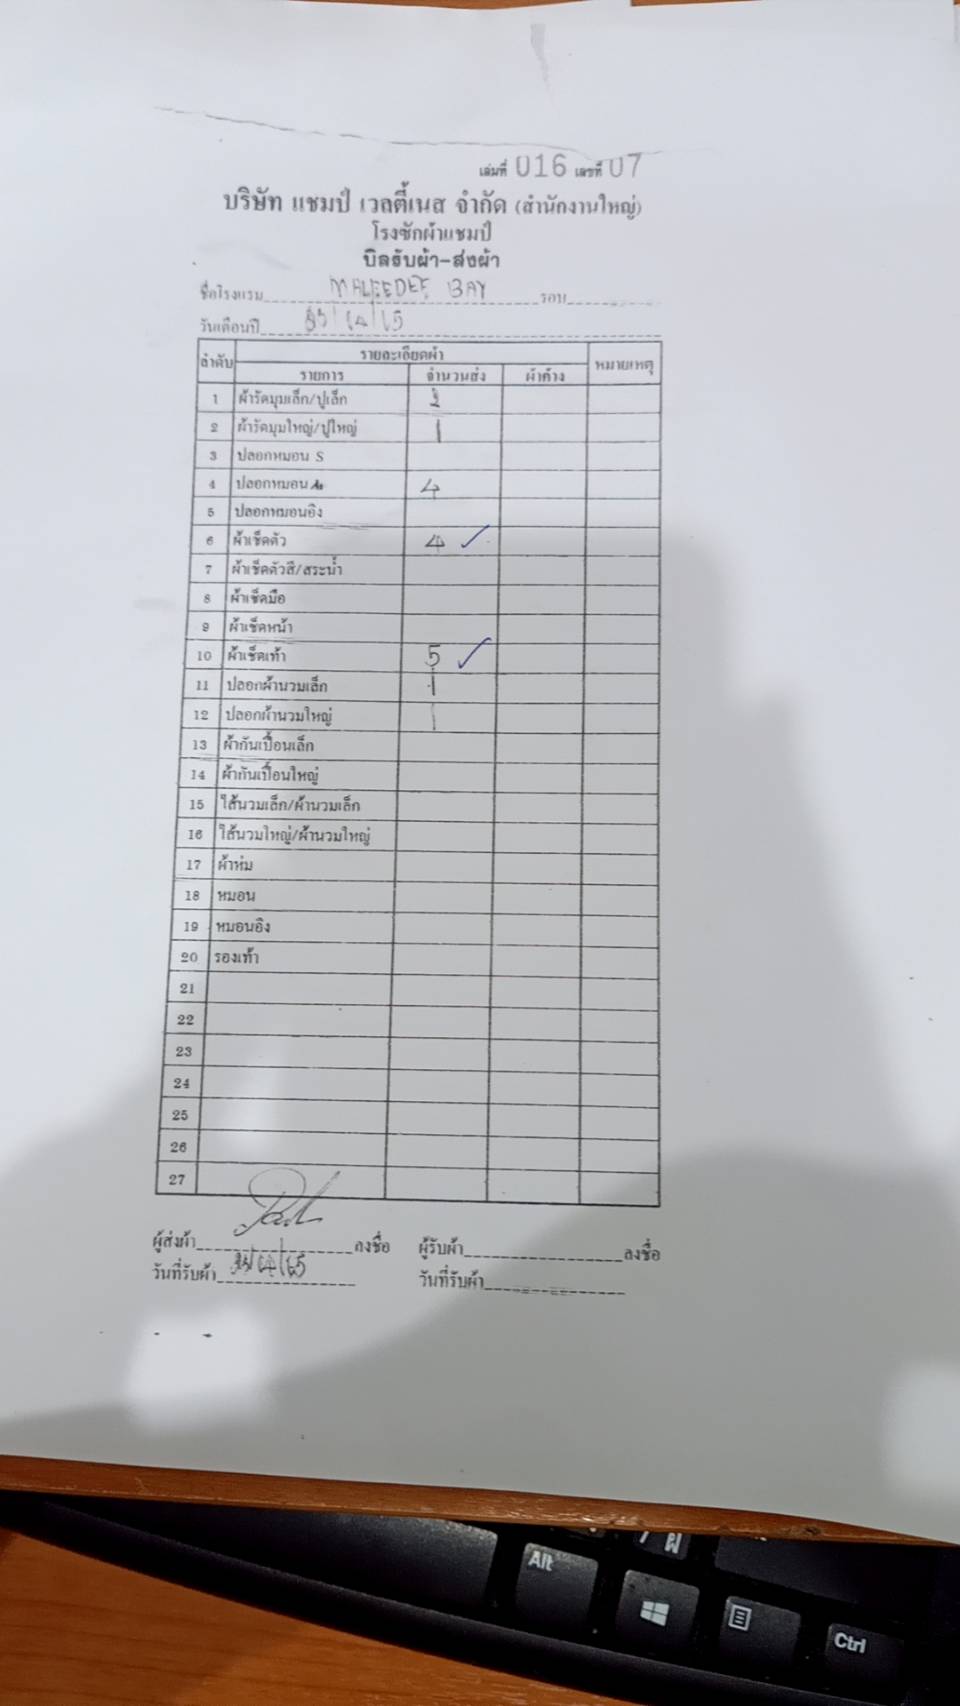 เล่มที่ 016 เลขที่ 07
บริษัท แชมป์ เวลตี้เนส จำกัด (สำนักงานใหญ่)
โรงซักผ้าแชมป์
บิลรับผ้า-ส่งผ้า
ชื่อโรงแรม MALEEDEE BAY รอบ
วันเดือนปี
ลำดับ รายละเอียดผ้า หมายเหตุ
รายการ จำนวนส่ง ผ้าค้าง
1 ผ้ารัดมุมเล็ก/ปูเล็ก 2
2 ผ้ารัดมุมใหญ่/ปูใหญ่ 1
3 ปลอกหมอน S
4 ปลอกหมอน 4
5 ปลอกหมอนอิง
6 ผ้าเช็ดตัว 4 ✓
7 ผ้าเช็ดตัวสี/สระน้ำ
8 ผ้าเช็ดมือ
9 ผ้าเช็ดหน้า
10 ผ้าเช็ดเท้า 5 ✓
11 ปลอกผ้านวมเล็ก 1
12 ปลอกผ้านวมใหญ่ 1
13 ผ้ากันเปื้อนเล็ก
14 ผ้ากันเปื้อนใหญ่
15 ไส้นวมเล็ก/ผ้านวมเล็ก
16 ไส้นวมใหญ่/ผ้านวมใหญ่
17 ผ้าห่ม
18 หมอน
19 หมอนอิง
20 รองเท้า
21
22
23
24
25
26
27
ผู้ส่งผ้า ลงชื่อ ผู้รับผ้า ลงชื่อ
วันที่รับผ้า วันที่รับผ้า
Alt
Ctrl